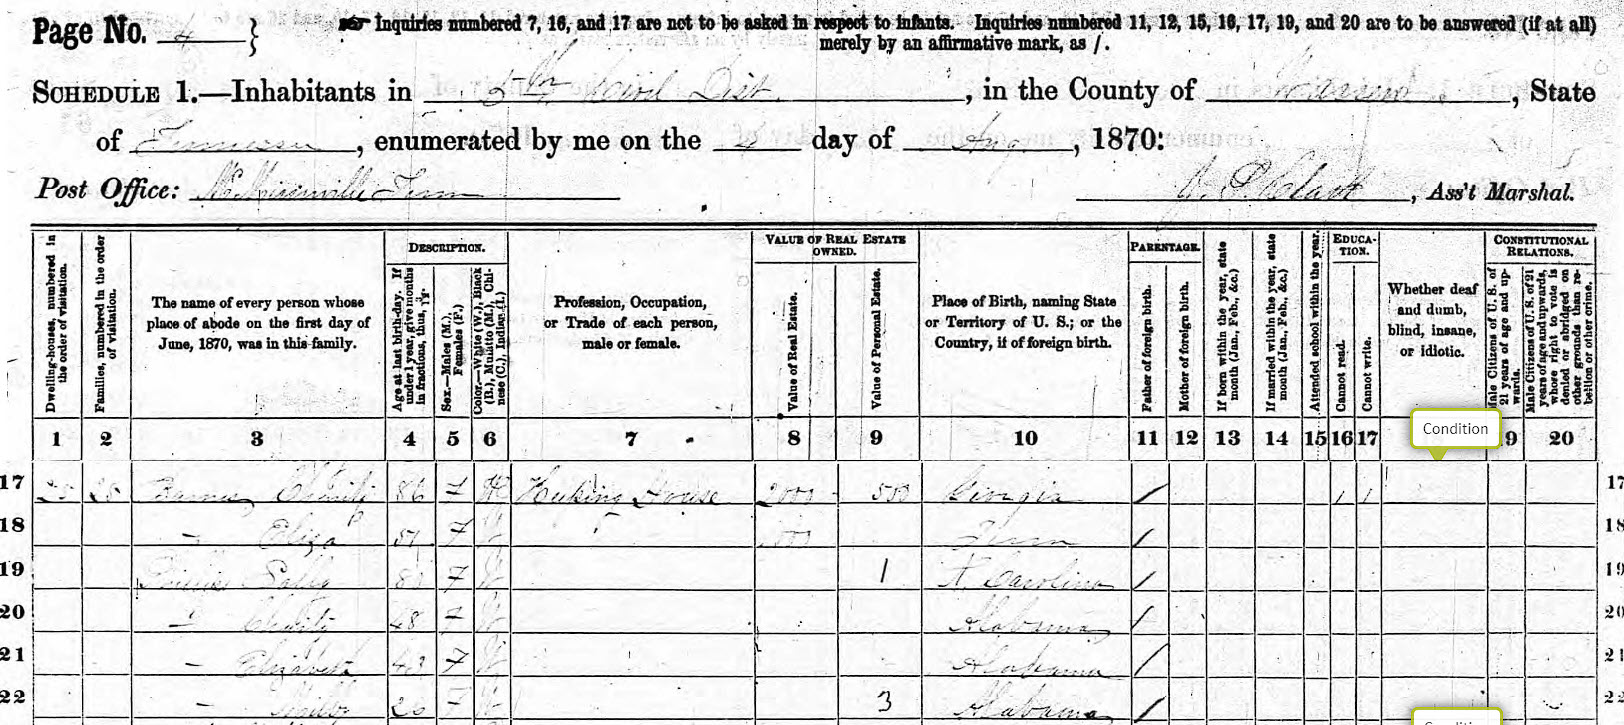 Page No. 4 } Inquiries numbered 7, 16, and 17 are not to be asked in respect to infants. Inquiries numbered 11, 12, 15, 16, 17, 19, and 20 are to be answered (if at all)
merely by an affirmative mark, as /.
SCHEDULE 1.—Inhabitants in 5th Civil Dist., in the County of Warren, State
of Tennessee, enumerated by me on the 4 day of Aug, 1870:
Post Office: McMinnville Tenn
J. P. Clark, Ass't Marshal.
Dwelling-houses, numbered in the order of visitation.
Families, numbered in the order of visitation.
The name of every person whose place of abode on the first day of June, 1870, was in this family.
DESCRIPTION.
Age at last birth-day. If under 1 year, give months in fractions, thus,
Sex.—Males (M.), Females (F.)
Color.—White (W.), Black (B.), Mulatto (M.), Chinese (C.), Indian (I.)
Profession, Occupation, or Trade of each person, male or female.
VALUE OF REAL ESTATE OWNED.
Value of Real Estate.
Value of Personal Estate.
Place of Birth, naming State or Territory of U. S.; or the Country, if of foreign birth.
PARENTAGE.
Father of foreign birth.
Mother of foreign birth.
If born within the year, state month (Jan., Feb., &c.)
If married within the year, state month (Jan., Feb., &c.)
Attended school within the year.
EDUCATION.
Cannot read.
Cannot write.
Whether deaf and dumb, blind, insane, or idiotic.
CONSTITUTIONAL RELATIONS.
Male Citizens of U. S. of 21 years of age and upwards.
Male Citizens of U. S. of 21 years of age and upwards, whose right to vote is denied or abridged on other grounds than rebellion or other crime.
1 2 3 4 5 6 7 8 9 10 11 12 13 14 15 16 17 Condition 19 20
17 86 F W Keeping House 2000 500 Georgia / / / 17
18 - Eliza P 51 F W Tenn / 18
19 Sally F W 1 N. Carolina / 19
20 - Charity 48 F W Alabama / 20
21 - Elizabeth 43 F W Alabama / 21
22 - F W 3 Alabama / 22
Condition